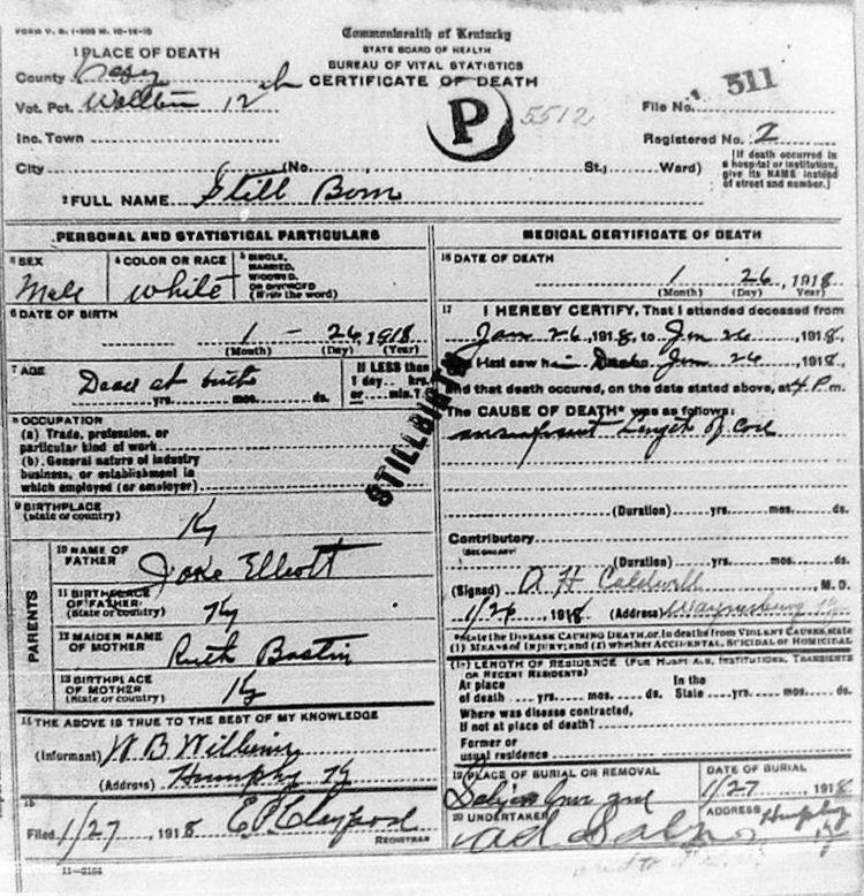 Commonwealth of Kentucky
STATE BOARD OF HEALTH
BUREAU OF VITAL STATISTICS
CERTIFICATE OF DEATH
1 PLACE OF DEATH
County Casey
Vot. Pct. 12
Inc. Town
City (No. , St.; Ward)
P
5512
File No. 511
Registered No. 2
[If death occurred in a hospital or institution, give its NAME instead of street and number.]
2 FULL NAME Still Born
PERSONAL AND STATISTICAL PARTICULARS
3 SEX
Male
4 COLOR OR RACE
White
5 SINGLE, MARRIED, WIDOWED, OR DIVORCED (Write the word)
6 DATE OF BIRTH
1 - 26, 1918
(Month) (Day) (Year)
7 AGE
Dead at birth
yrs. mos. ds.
If LESS than 1 day hrs. or min.?
8 OCCUPATION
(a) Trade, profession, or particular kind of work
(b) General nature of industry business, or establishment in which employed (or employer)
9 BIRTHPLACE
(State or country)
Ky
PARENTS
10 NAME OF FATHER
Jake Elliott
11 BIRTHPLACE OF FATHER
(State or country)
Ky
12 MAIDEN NAME OF MOTHER
Ruth Bastin
13 BIRTHPLACE OF MOTHER
(State or country)
Ky
14 THE ABOVE IS TRUE TO THE BEST OF MY KNOWLEDGE
(Informant) W B
(Address) Humphy Ky
15
Filed 1/27, 1918
REGISTRAR
11-2184
STILLBIRTH
MEDICAL CERTIFICATE OF DEATH
16 DATE OF DEATH
1 26, 1918
(Month) (Day) Year)
17 I HEREBY CERTIFY, That I attended deceased from
Jan 26, 1918, to Jan 26 1918,
I last saw him Jan 26 1918,
and that death occured, on the date stated above, at 4 P.m.
The CAUSE OF DEATH* was as follows:
Length of Cord
(Duration) yrs. mos. ds.
Contributory
(SECONDARY)
(Duration) yrs. mos. ds.
(Signed) A H Caldwell, M.D.
1/26, 1918 (Address) Waynesburg Ky
*State the DISEASE CAUSING DEATH, or, in deaths from VIOLENT CAUSES, state
(1) MEANS OF INJURY; and (2) whether ACCIDENTAL, SUICIDAL or HOMICIDAL
LENGTH OF RESIDENCE (FOR HOSPITALS, INSTITUTIONS, TRANSIENTS OR RECENT RESIDENTS)
At place of death yrs. mos. ds.
In the State yrs. mos. ds.
Where was disease contracted,
if not at place of death?
Former or
usual residence
19 PLACE OF BURIAL OR REMOVAL
DATE OF BURIAL
1/27 1918
20 UNDERTAKER
ADDRESS Humphy
Ky